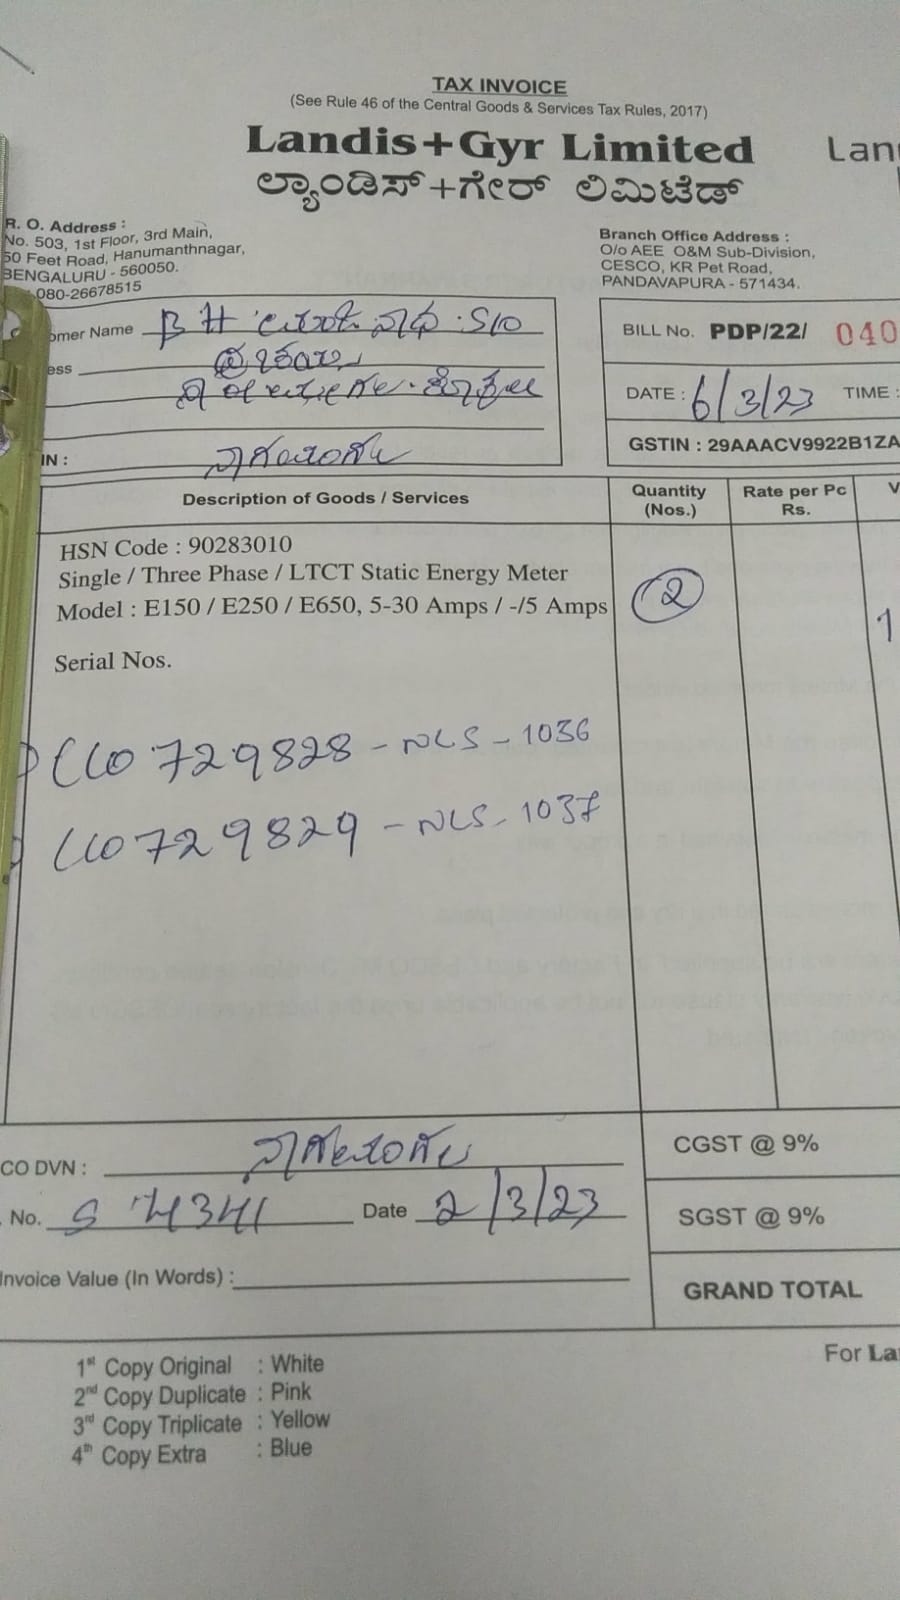 TAX INVOICE
(See Rule 46 of the Central Goods & Services Tax Rules, 2017)
Landis+Gyr Limited
Lan
ಲ್ಯಾಂಡಿಸ್+ಗೇರ್ ಲಿಮಿಟೆಡ್
R. O. Address :
No. 503, 1st Floor, 3rd Main,
50 Feet Road, Hanumanthnagar,
BENGALURU - 560050.
080-26678515
Branch Office Address :
O/o AEE O&M Sub-Division,
CESCO, KR Pet Road,
PANDAVAPURA - 571434.
omer Name B H S/O
ess
IN : ನಾಗಮಂಗಲ
BILL No. PDP/22/ 040
DATE : 6/3/23 TIME :
GSTIN : 29AAACV9922B1ZA
Description of Goods / Services
Quantity (Nos.)
Rate per Pc Rs.
V
HSN Code : 90283010
Single / Three Phase / LTCT Static Energy Meter
Model : E150 / E250 / E650, 5-30 Amps / -/5 Amps
2
1
Serial Nos.
729828 - NLS - 1036
729829 - NLS - 1037
CO DVN : ನಾಗಮಂಗಲ
No. Date 2/3/23
Invoice Value (In Words) :
CGST @ 9%
SGST @ 9%
GRAND TOTAL
For La
1st Copy Original : White
2nd Copy Duplicate : Pink
3rd Copy Triplicate : Yellow
4th Copy Extra : Blue